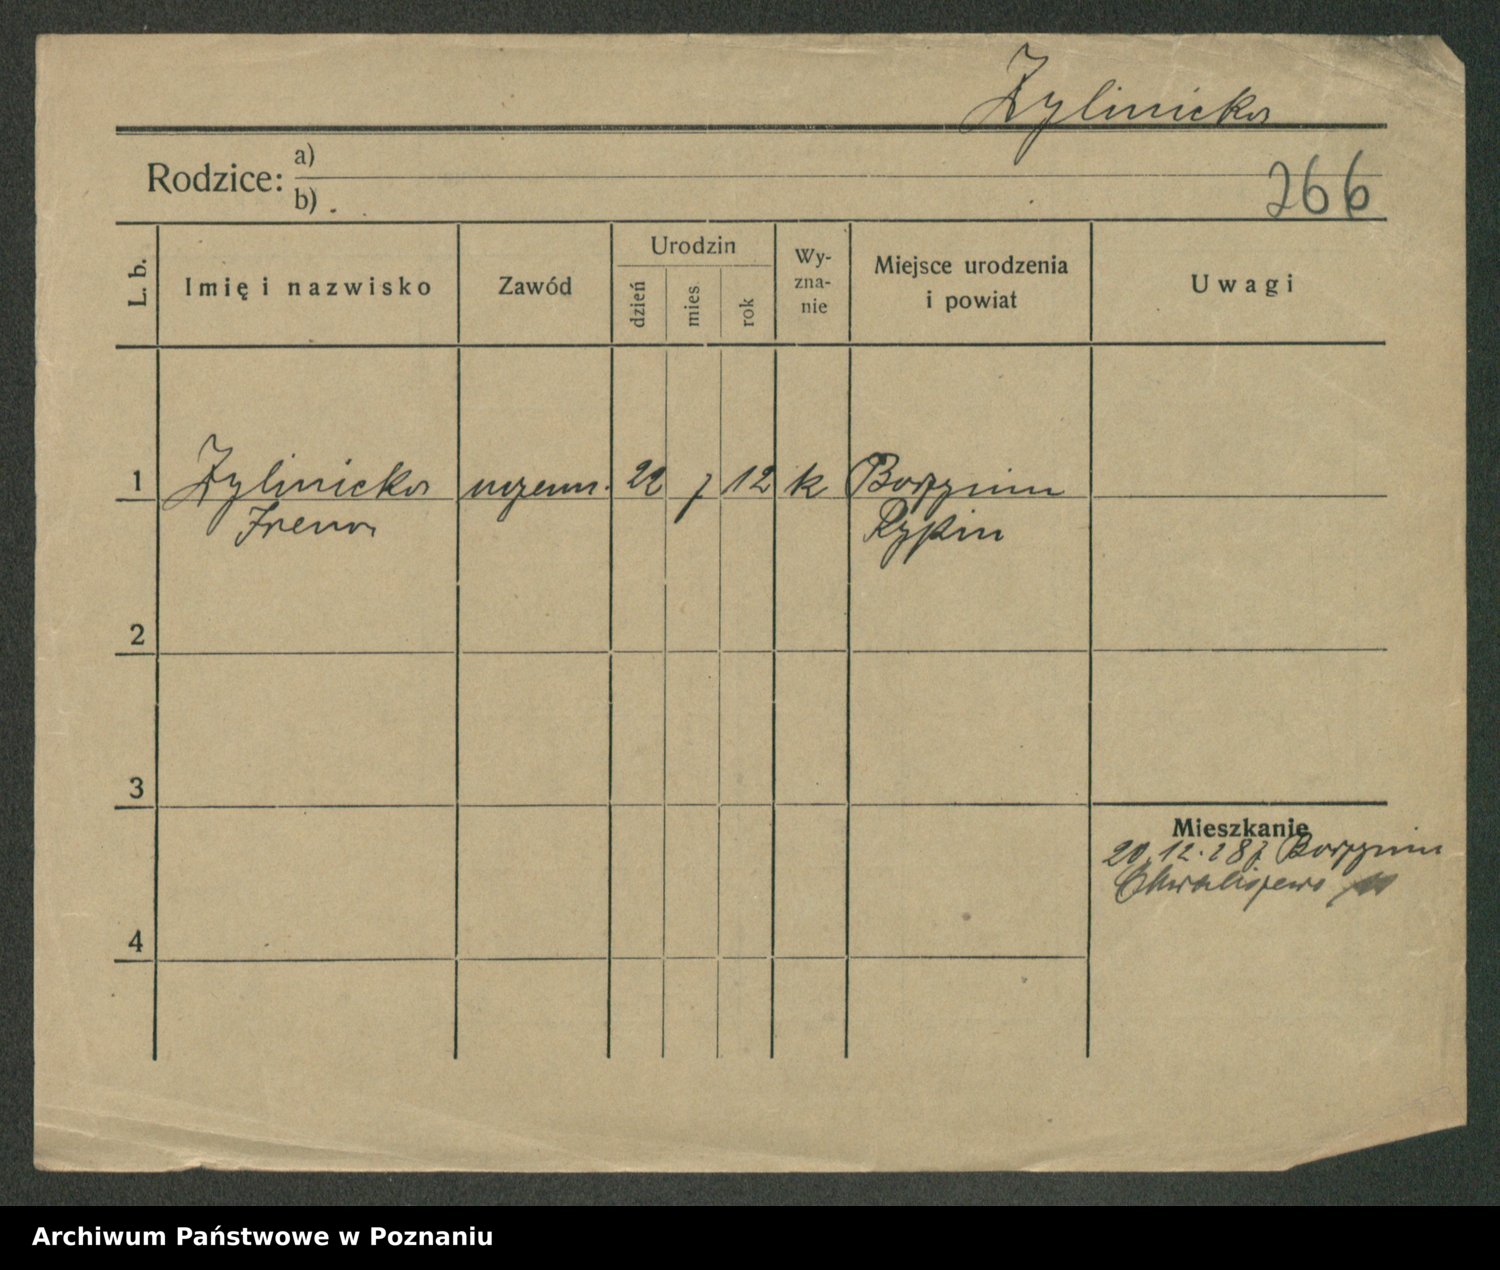 Zylinicka
Rodzice: a)
b)
266
L. b.
Imię i nazwisko
Zawód
Urodzin
dzień
mies
rok
Wy-
zna-
nie
Miejsce urodzenia
i powiat
Uwagi
1 Zylinicka uczenn. 22 7 12 k
Irena Rypin
2
3
Mieszkanie
20.12.28
Chwaliszewo
4
Archiwum Państwowe w Poznaniu